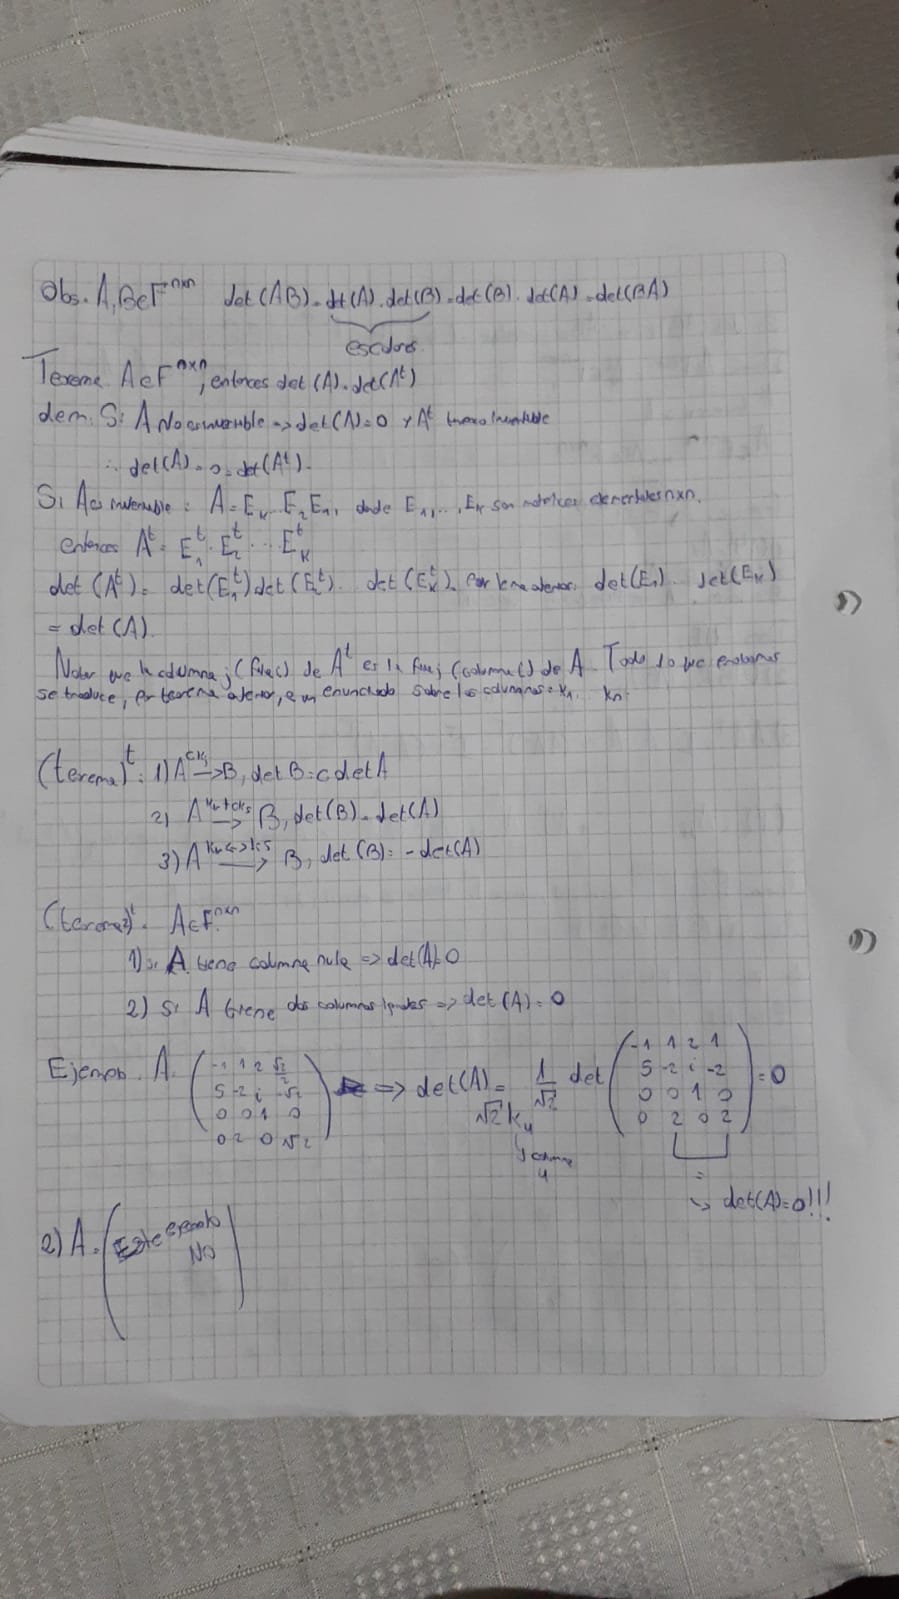 Obs. A,B∈F^nxn det(AB)=det(A).det(B)=det(B).det(A)=det(BA)
escalares
Teorema. A∈F^nxn, entonces det(A)=det(A^t)
dem. Si A No es invertible => det(A)=0 y A^t tampoco invertible
∴ det(A)=0=det(A^t).
Si A es invertible: A=E_k...E_2E_1, donde E_1,...,E_k son matrices elementales nxn.
entonces A^t = E_1^t.E_2^t...E_k^t
det(A^t)= det(E_1^t)det(E_2^t). det(E_k^t)= Por lema anterior det(E_1). det(E_k)
= det(A).
Notar que la columna j (fila i) de A^t es la fila j (columna i) de A. Todo lo que probamos
se traduce, por teorema anterior, a un enunciado sobre las columnas: k_1. k_n.
(terema)^t: 1) A —ck_j→ B, det B=c det A
2) A —k_r+ck_s→ B, det(B)=det(A)
3) A —k_r<->k_s→ B, det(B)=-det(A)
(terema2)^t. A∈F^nxn
1) Si A tiene columna nula => det(A)=0
2) Si A tiene dos columnas iguales => det(A)=0
Ejemplo. A= => det(A)= 1/√2 det =0
-1 1 2 √2/2
5 -2 i -√2
0 0 1 0
0 2 0 √2
-1 1 2 1
5 -2 i -2
0 0 1 0
0 2 0 2
√2k_4
columna
4
=
↳ det(A)=0!!!
2) A= (Este ejemplo
No)